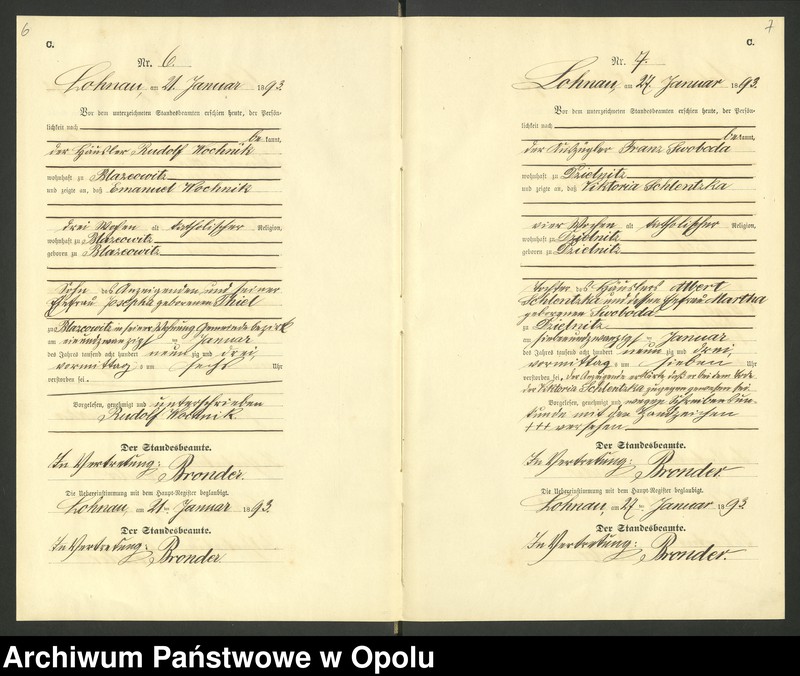 6
C.
Nr. 6.
Lohnau, am 21. Januar 1893.
Vor dem unterzeichneten Standesbeamten erschien heute, der Persön-
lichkeit nach
be kannt,
der Häusler Rudolf Wochnik
wohnhaft zu Blazeowitz
und zeigte an, daß Emanuel Wochnik
drei Wochen alt katholischer Religion,
wohnhaft zu Blazeowitz
geboren zu Blazeowitz
Sohn des Anzeigenden und seiner
Ehefrau Josepha geborenen Thiel
zu Blazeowitz in seiner Wohnung Gemeindebezirk
am einundzwanzigsten Januar
des Jahres tausend acht hundert neunzig und drei,
vormittags um sechs Uhr
verstorben sei.
Vorgelesen, genehmigt und unterschrieben
Rudolf Wochnik
Der Standesbeamte.
In Vertretung:
Bronder.
Die Uebereinstimmung mit dem Haupt-Register beglaubigt.
Lohnau, am 21ten Januar 1893.
Der Standesbeamte.
In Vertretung:
Bronder
7
C.
Nr. 7.
Lohnau, am 27. Januar 1893.
Vor dem unterzeichneten Standesbeamten erschien heute, der Persön-
lichkeit nach
be kannt,
der Auszügler Franz Swoboda
wohnhaft zu Dzielnitz
und zeigte an, daß Viktoria Schlentzka
vier Wochen alt katholischer Religion,
wohnhaft zu Dzielnitz
geboren zu Dzielnitz
Tochter des Häuslers Albert
Schlentzka und dessen Ehefrau Martha
geborenen Swoboda
zu Dzielnitz
am siebenundzwanzigsten Januar
des Jahres tausend acht hundert neunzig und drei,
vormittags um sieben Uhr
verstorben sei. Der Anzeigende erklärte, daß er bei dem Tode
der Viktoria Schlentzka zugegen gewesen sei.
Vorgelesen, genehmigt und wegen Schreibensun-
kunde mit den Handzeichen
+++ versehen.
Der Standesbeamte.
In Vertretung:
Bronder.
Die Uebereinstimmung mit dem Haupt-Register beglaubigt.
Lohnau, am 27ten Januar 1893.
Der Standesbeamte.
In Vertretung:
Bronder.
Archiwum Państwowe w Opolu